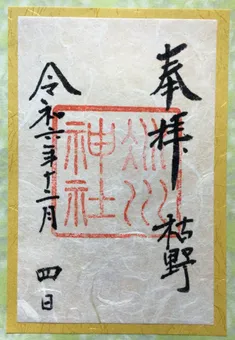 奉拝　枯野
神社
令和六年十二月四日